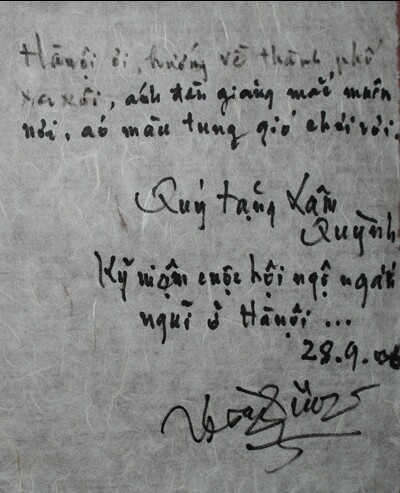 Hà nội ơi, hướng về thành phố
xa xôi, ánh đèn giăng mắc muôn
nơi, áo màu tung gió chơi vơi.
Quý tặng Lâm
Quỳnh
Kỷ niệm cuộc hội ngộ ngắn
ngủi ở Hà Nội ...
28.9.06